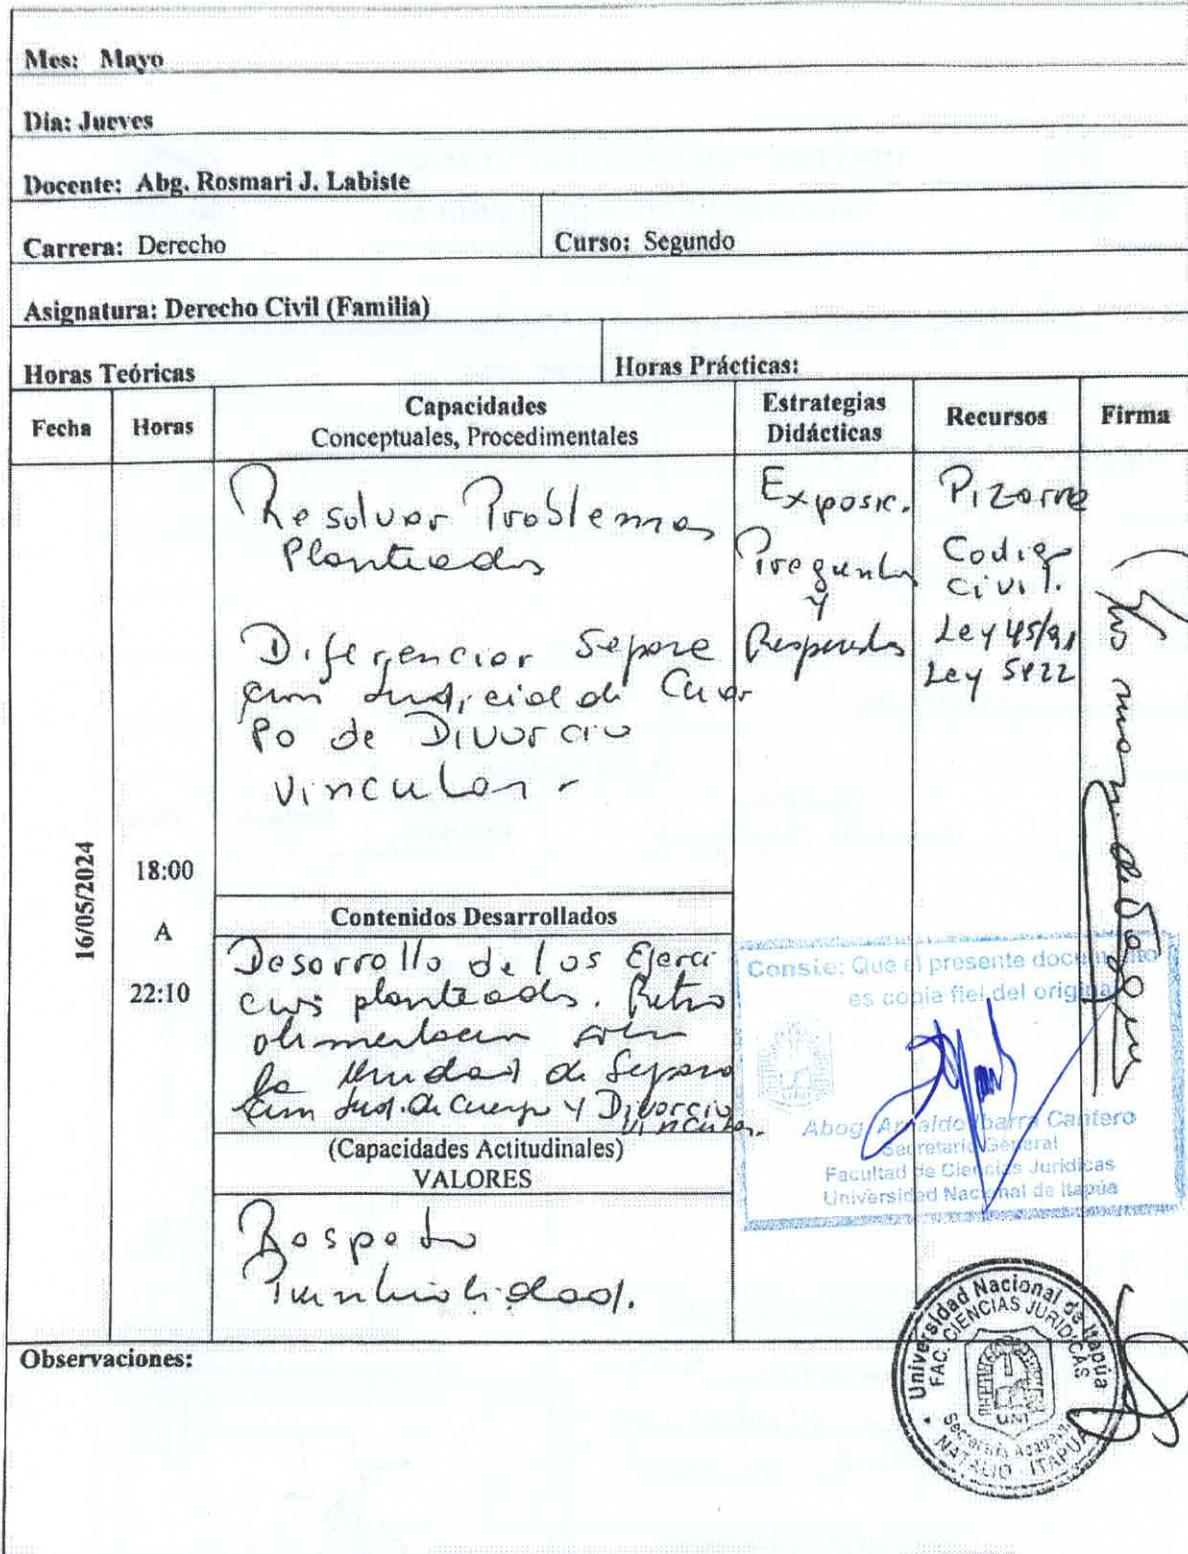 Mes: Mayo
Dia: Jueves
Docente: Abg. Rosmari J. Labiste
Carrera: Derecho
Curso: Segundo
Asignatura: Derecho Civil (Familia)
Horas Teóricas
Horas Prácticas:
Fecha
Horas
Capacidades
Conceptuales, Procedimentales
Estrategias
Didácticas
Recursos
Firma
16/05/2024
18:00
A
22:10
Resolver Problemas
Planteados
Diferenciar Separa
cion Judicial de Cuer
po de Divorcio
vincular.
Exposic.
Preguntas
y
Respuestas
Pizarra
Codigo
Civil.
Ley 45/91
Ley 5422
Contenidos Desarrollados
Desarrollo de los Ejerci
cios planteados. Retro
alimentacion sobre
la Unidad de Separa
cion Jud. de Cuerpo y Divorcio
vincular.
(Capacidades Actitudinales)
VALORES
Respeto
Puntualidad.
Conste: Que el presente documento
es copia fiel del original
Abog. Arnaldo Ibarra Cantero
Secretario General
Facultad de Ciencias Jurídicas
Universidad Nacional de Itapúa
Observaciones:
Universidad Nacional de Itapúa
FAC. CIENCIAS JURIDICAS
UNI
NATALIO - ITAPUA